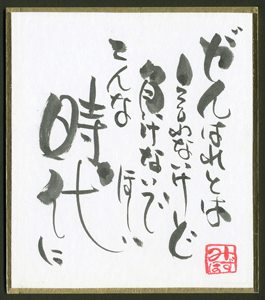 がんばれとは
言わないけど
負けないで
ほしい
こんな
時代に